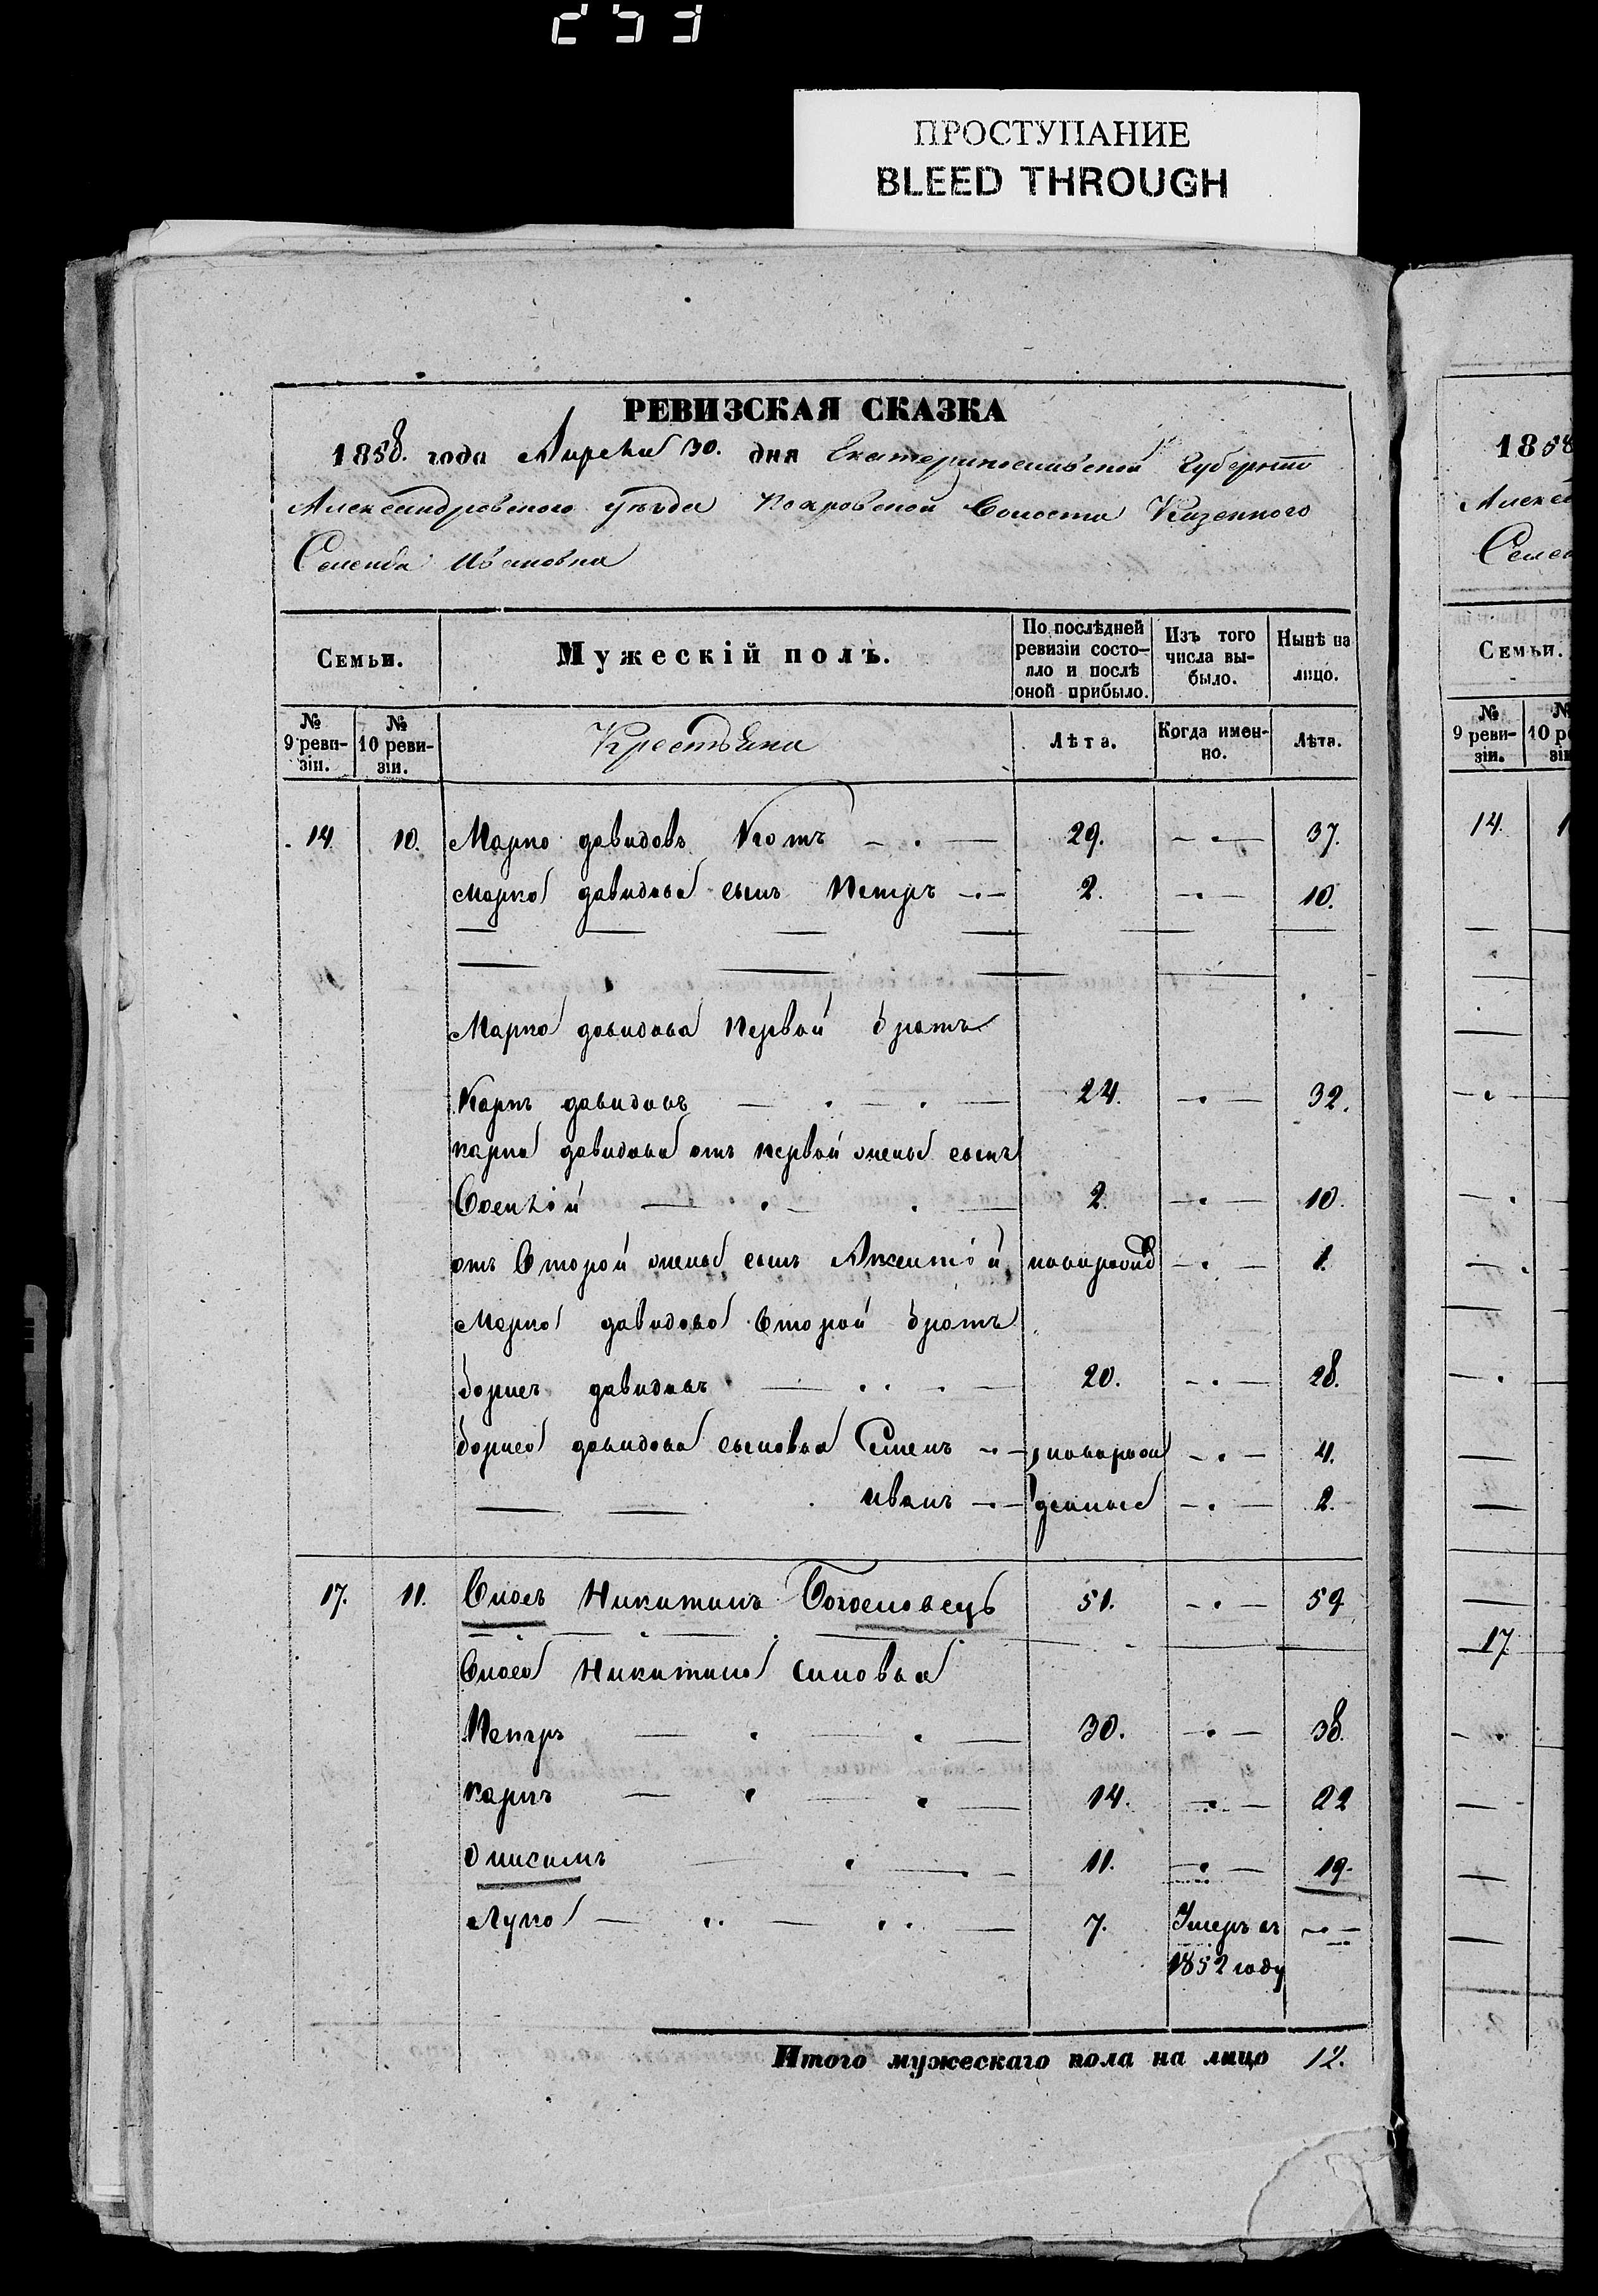 253
ПРОСТУПАНИЕ
BLEED THROUGH
РЕВИЗСКАЯ СКАЗКА
1858. года Апреля 30. дня Екатеринославской Губернии
Александровского уѣзда Покровской Волости Казенного
Селенія Ивановка
Семьи.
Мужескій полъ.
По послѣдней ревизіи состояло и послѣ оной прибыло.
Изъ того числа выбыло.
Нынѣ на лицо.
№ 9 ревизіи.
№ 10 ревизіи.
Крестьяни
Лѣта.
Когда именно.
Лѣта.
14 10. Марко давидовъ Котъ 29. 37.
Марка давидова сынъ Петръ 2. 10.
Марка давидова первой братъ
Карпъ давидовъ 24. 32.
карпа давидова отъ первой жены сынъ
2. 10.
отъ Второй жены сынъ новорожд 1.
Марка давидова Второй братъ
борисъ давидовъ 20. 28.
бориса давидова сыновья Семенъ новорож 4.
иванъ денные 2.
17. 11. Власъ Никитинъ 51. 59
Власа Никитина синовья
Петръ 30. 38.
карпъ 14. 22
Онисимъ 11. 19.
Лука 7. Умеръ въ
1852 году
Итого мужескаго пола на лицо 12.
1858
Алексе
Селен
Семьи.
№ 9 ревизіи.
14.
17